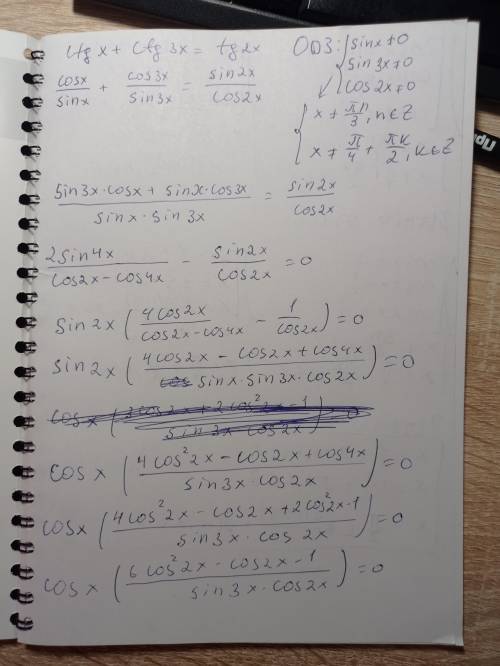 ctg x + ctg 3x = tg 2x
ОДЗ: { sinx ≠ 0
sin 3x ≠ 0
cos 2x ≠ 0
cosx/sinx + cos3x/sin3x = sin2x/cos2x
{ x ≠ πn/3, n∈Z
x ≠ π/4 + πk/2, k∈Z
(sin3x·cosx + sinx·cos3x)/(sinx·sin3x) = sin2x/cos2x
2sin4x/(cos2x-cos4x) - sin2x/cos2x = 0
sin2x (4cos2x/(cos2x-cos4x) - 1/cos2x) = 0
sin2x ((4cos2x - cos2x + cos4x)/(sinx·sin3x·cos2x)) = 0
cosx ((4cos²2x - cos2x + cos4x)/(sin3x·cos2x)) = 0
cosx ((4cos²2x - cos2x + 2cos²2x-1)/(sin3x·cos2x)) = 0
cosx ((6cos²2x - cos2x - 1)/(sin3x·cos2x)) = 0